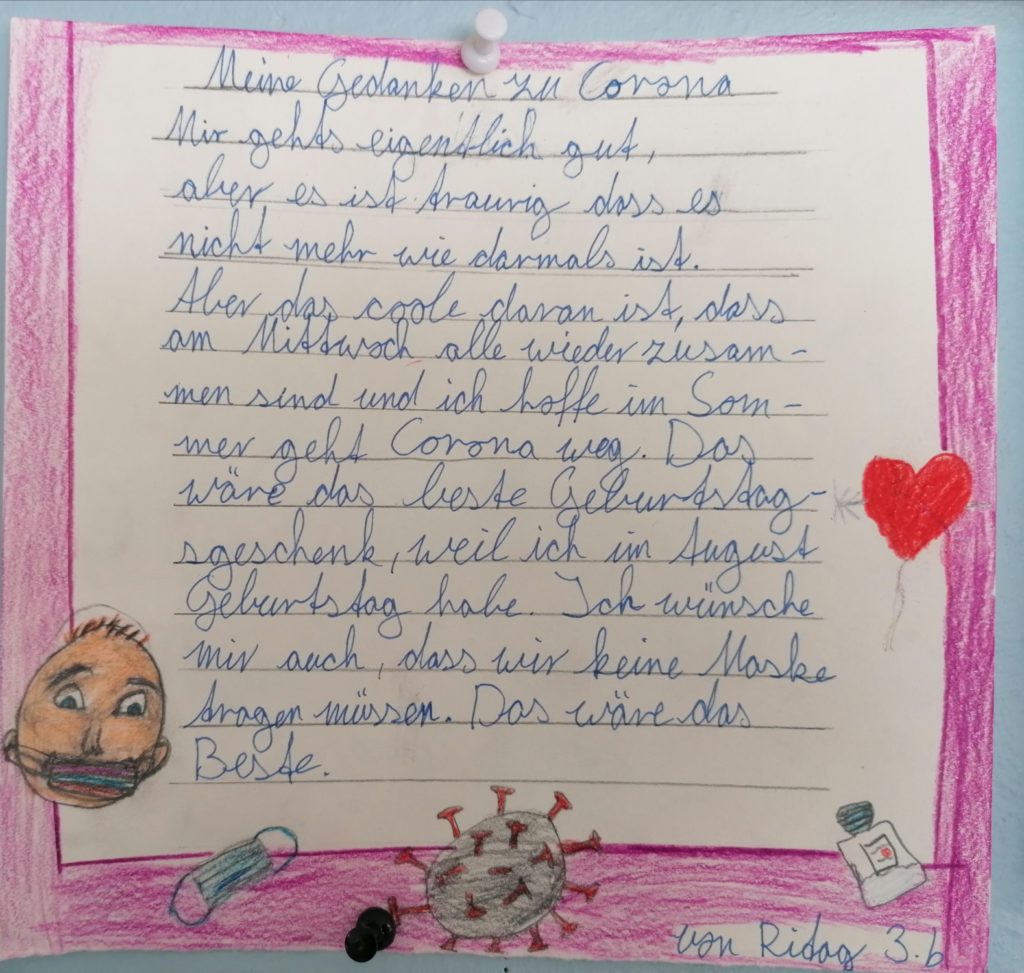 Meine Gedanken zu Corona
Mir gehts eigentlich gut,
aber es ist traurig dass es
nicht mehr wie darmals ist.
Aber das coole daran ist, dass
am Mittwoch alle wieder zusam-
men sind und ich hoffe im Som-
mer geht Corona weg. Das
wäre das beste Geburtstag-
sgeschenk, weil ich im August
Geburtstag habe. Ich wünsche
mir auch, dass wir keine Maske
tragen müssen. Das wäre das
Beste.
von Ridag 3.b